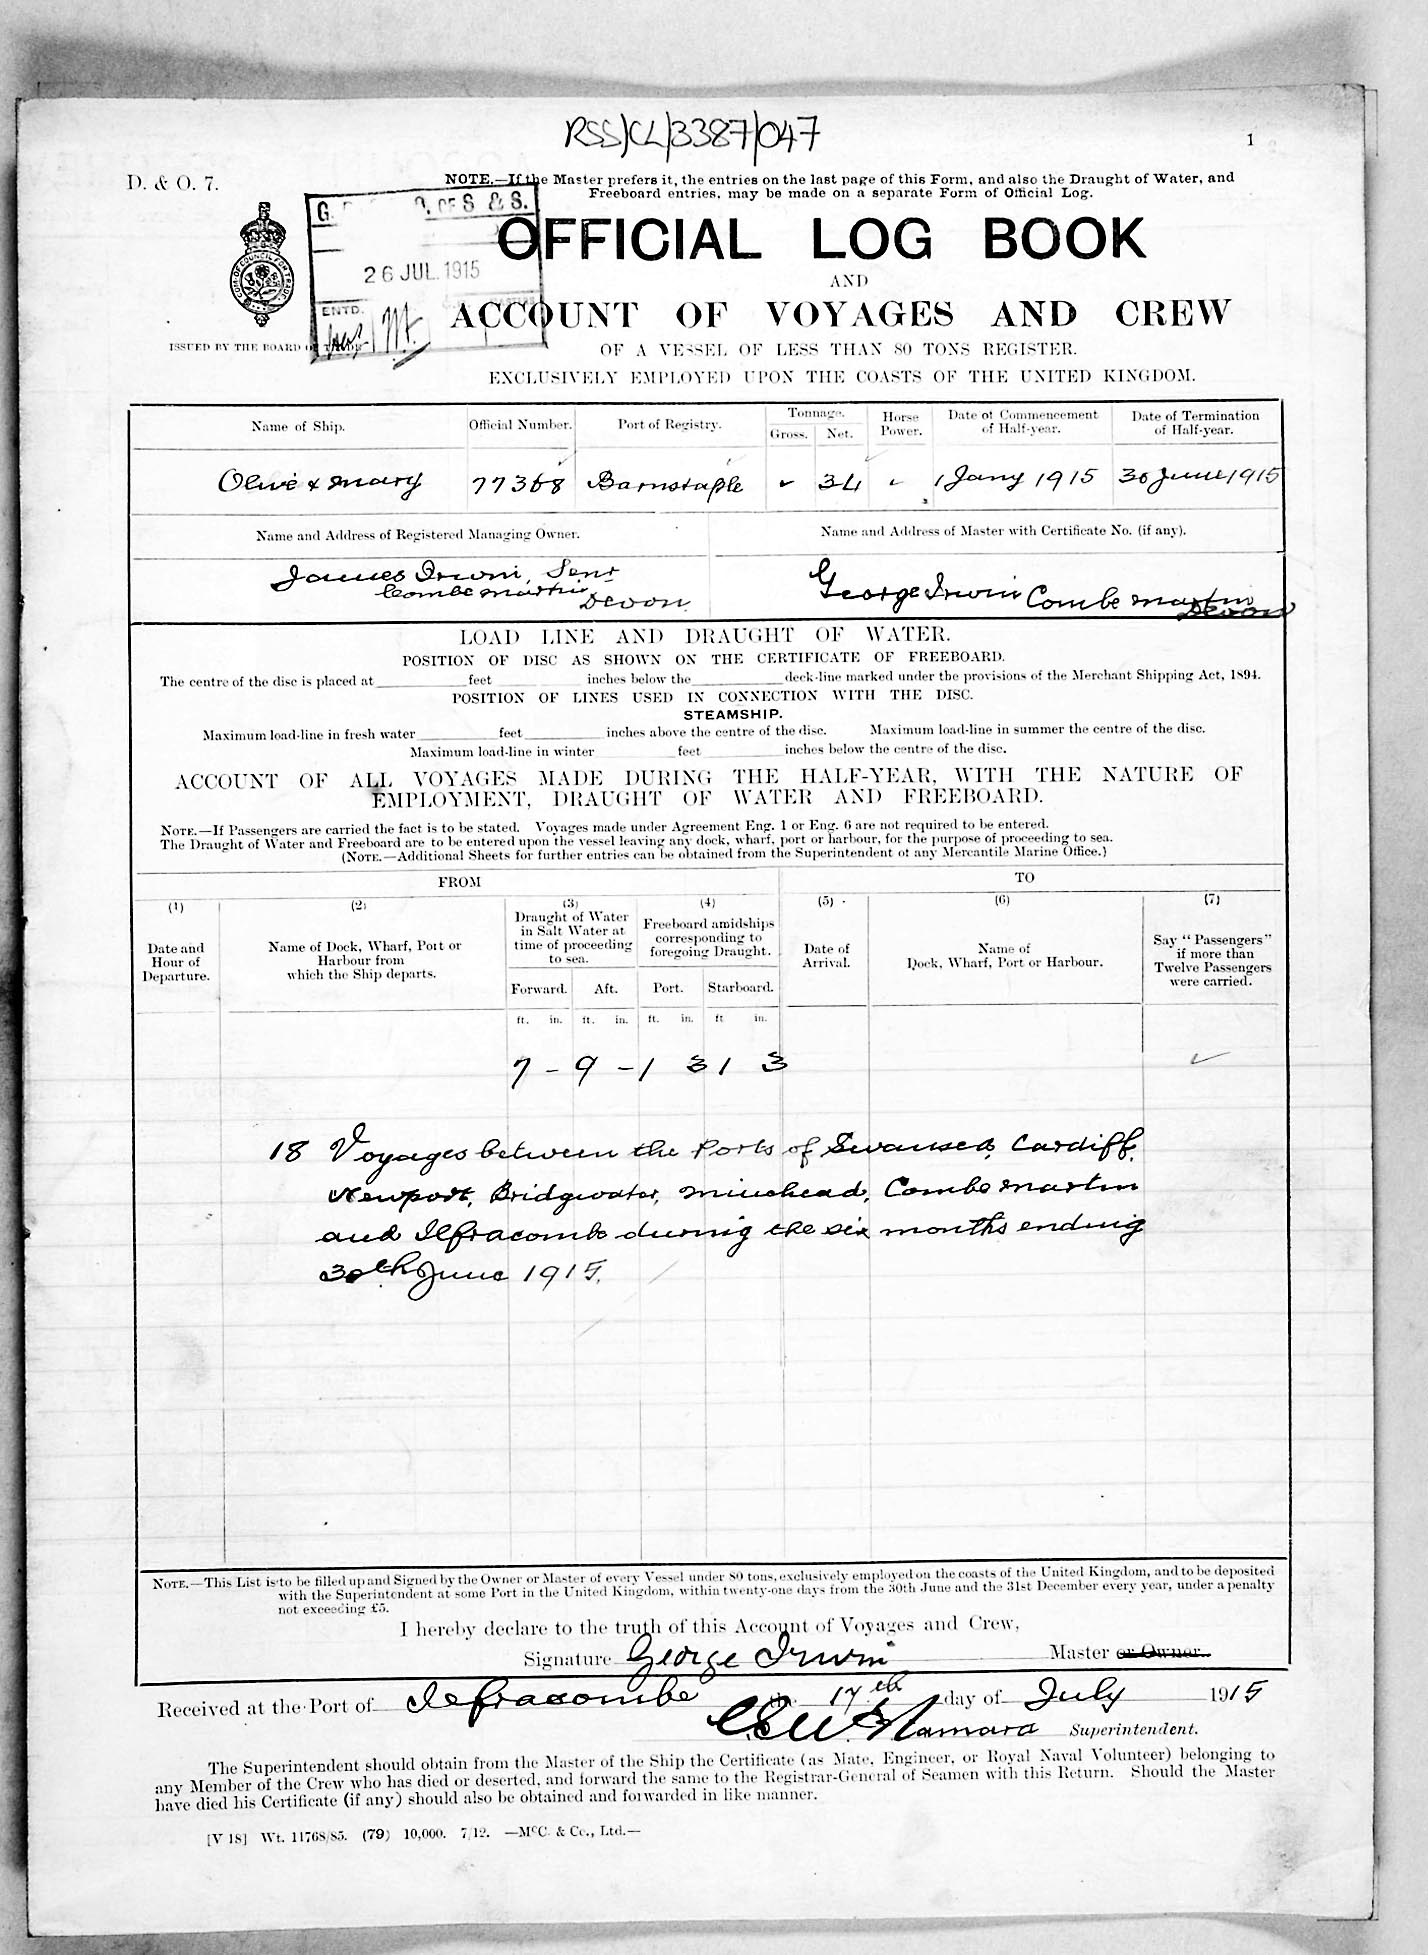 RSS/CL/3387/047
1
D. & O. 7.
NOTE.—If the Master prefers it, the entries on the last page of this Form, and also the Draught of Water, and
Freeboard entries, may be made on a separate Form of Official Log.
G. O. OF S & S.
26 JUL. 1915
ENTD.
OFFICIAL LOG BOOK
AND
ACCOUNT OF VOYAGES AND CREW
ISSUED BY THE BOARD OF TRADE
OF A VESSEL OF LESS THAN 80 TONS REGISTER.
EXCLUSIVELY EMPLOYED UPON THE COASTS OF THE UNITED KINGDOM.
Name of Ship. Official Number. Port of Registry. Tonnage. Gross. Net. Horse Power. Date of Commencement of Half-year. Date of Termination of Half-year.
Olive & Mary 77368 Barnstaple 34 1 Jany 1915 30 June 1915
Name and Address of Registered Managing Owner. Name and Address of Master with Certificate No. (if any).
James Irwin, Senr
Combe Martin
Devon
George Irwin Combe Martin
Devon
LOAD LINE AND DRAUGHT OF WATER.
POSITION OF DISC AS SHOWN ON THE CERTIFICATE OF FREEBOARD.
The centre of the disc is placed at feet inches below the deck-line marked under the provisions of the Merchant Shipping Act, 1894.
POSITION OF LINES USED IN CONNECTION WITH THE DISC.
STEAMSHIP.
Maximum load-line in fresh water feet inches above the centre of the disc. Maximum load-line in summer the centre of the disc.
Maximum load-line in winter feet inches below the centre of the disc.
ACCOUNT OF ALL VOYAGES MADE DURING THE HALF-YEAR, WITH THE NATURE OF
EMPLOYMENT, DRAUGHT OF WATER AND FREEBOARD.
NOTE.—If Passengers are carried the fact is to be stated. Voyages made under Agreement Eng. 1 or Eng. 6 are not required to be entered.
The Draught of Water and Freeboard are to be entered upon the vessel leaving any dock, wharf, port or harbour, for the purpose of proceeding to sea.
(NOTE.—Additional Sheets for further entries can be obtained from the Superintendent of any Mercantile Marine Office.)
FROM TO
(1) (2) (3) (4) (5) (6) (7)
Date and Hour of Departure.
Name of Dock, Wharf, Port or Harbour from which the Ship departs.
Draught of Water in Salt Water at time of proceeding to sea.
Freeboard amidships corresponding to foregoing Draught.
Date of Arrival.
Name of Dock, Wharf, Port or Harbour.
Say "Passengers" if more than Twelve Passengers were carried.
Forward. Aft. Port. Starboard.
ft. in. ft. in. ft. in. ft in.
7 - 9 - 1 3 1 3
18 Voyages between the Ports of Swansea, Cardiff,
Newport, Bridgwater, Minehead, Combe Martin
and Ilfracombe during the six months ending
30th June 1915.
NOTE.—This List is to be filled up and Signed by the Owner or Master of every Vessel under 80 tons, exclusively employed on the coasts of the United Kingdom, and to be deposited
with the Superintendent at some Port in the United Kingdom, within twenty-one days from the 30th June and the 31st December every year, under a penalty
not exceeding £5.
I hereby declare to the truth of this Account of Voyages and Crew,
Signature George Irwin Master or Owner.
Received at the Port of Ilfracombe the 17th day of July 1915
Superintendent.
The Superintendent should obtain from the Master of the Ship the Certificate (as Mate, Engineer, or Royal Naval Volunteer) belonging to
any Member of the Crew who has died or deserted, and forward the same to the Registrar-General of Seamen with this Return. Should the Master
have died his Certificate (if any) should also be obtained and forwarded in like manner.
[V 18] Wt. 11768/85. (79) 10,000. 7/12. —McC. & Co., Ltd.—